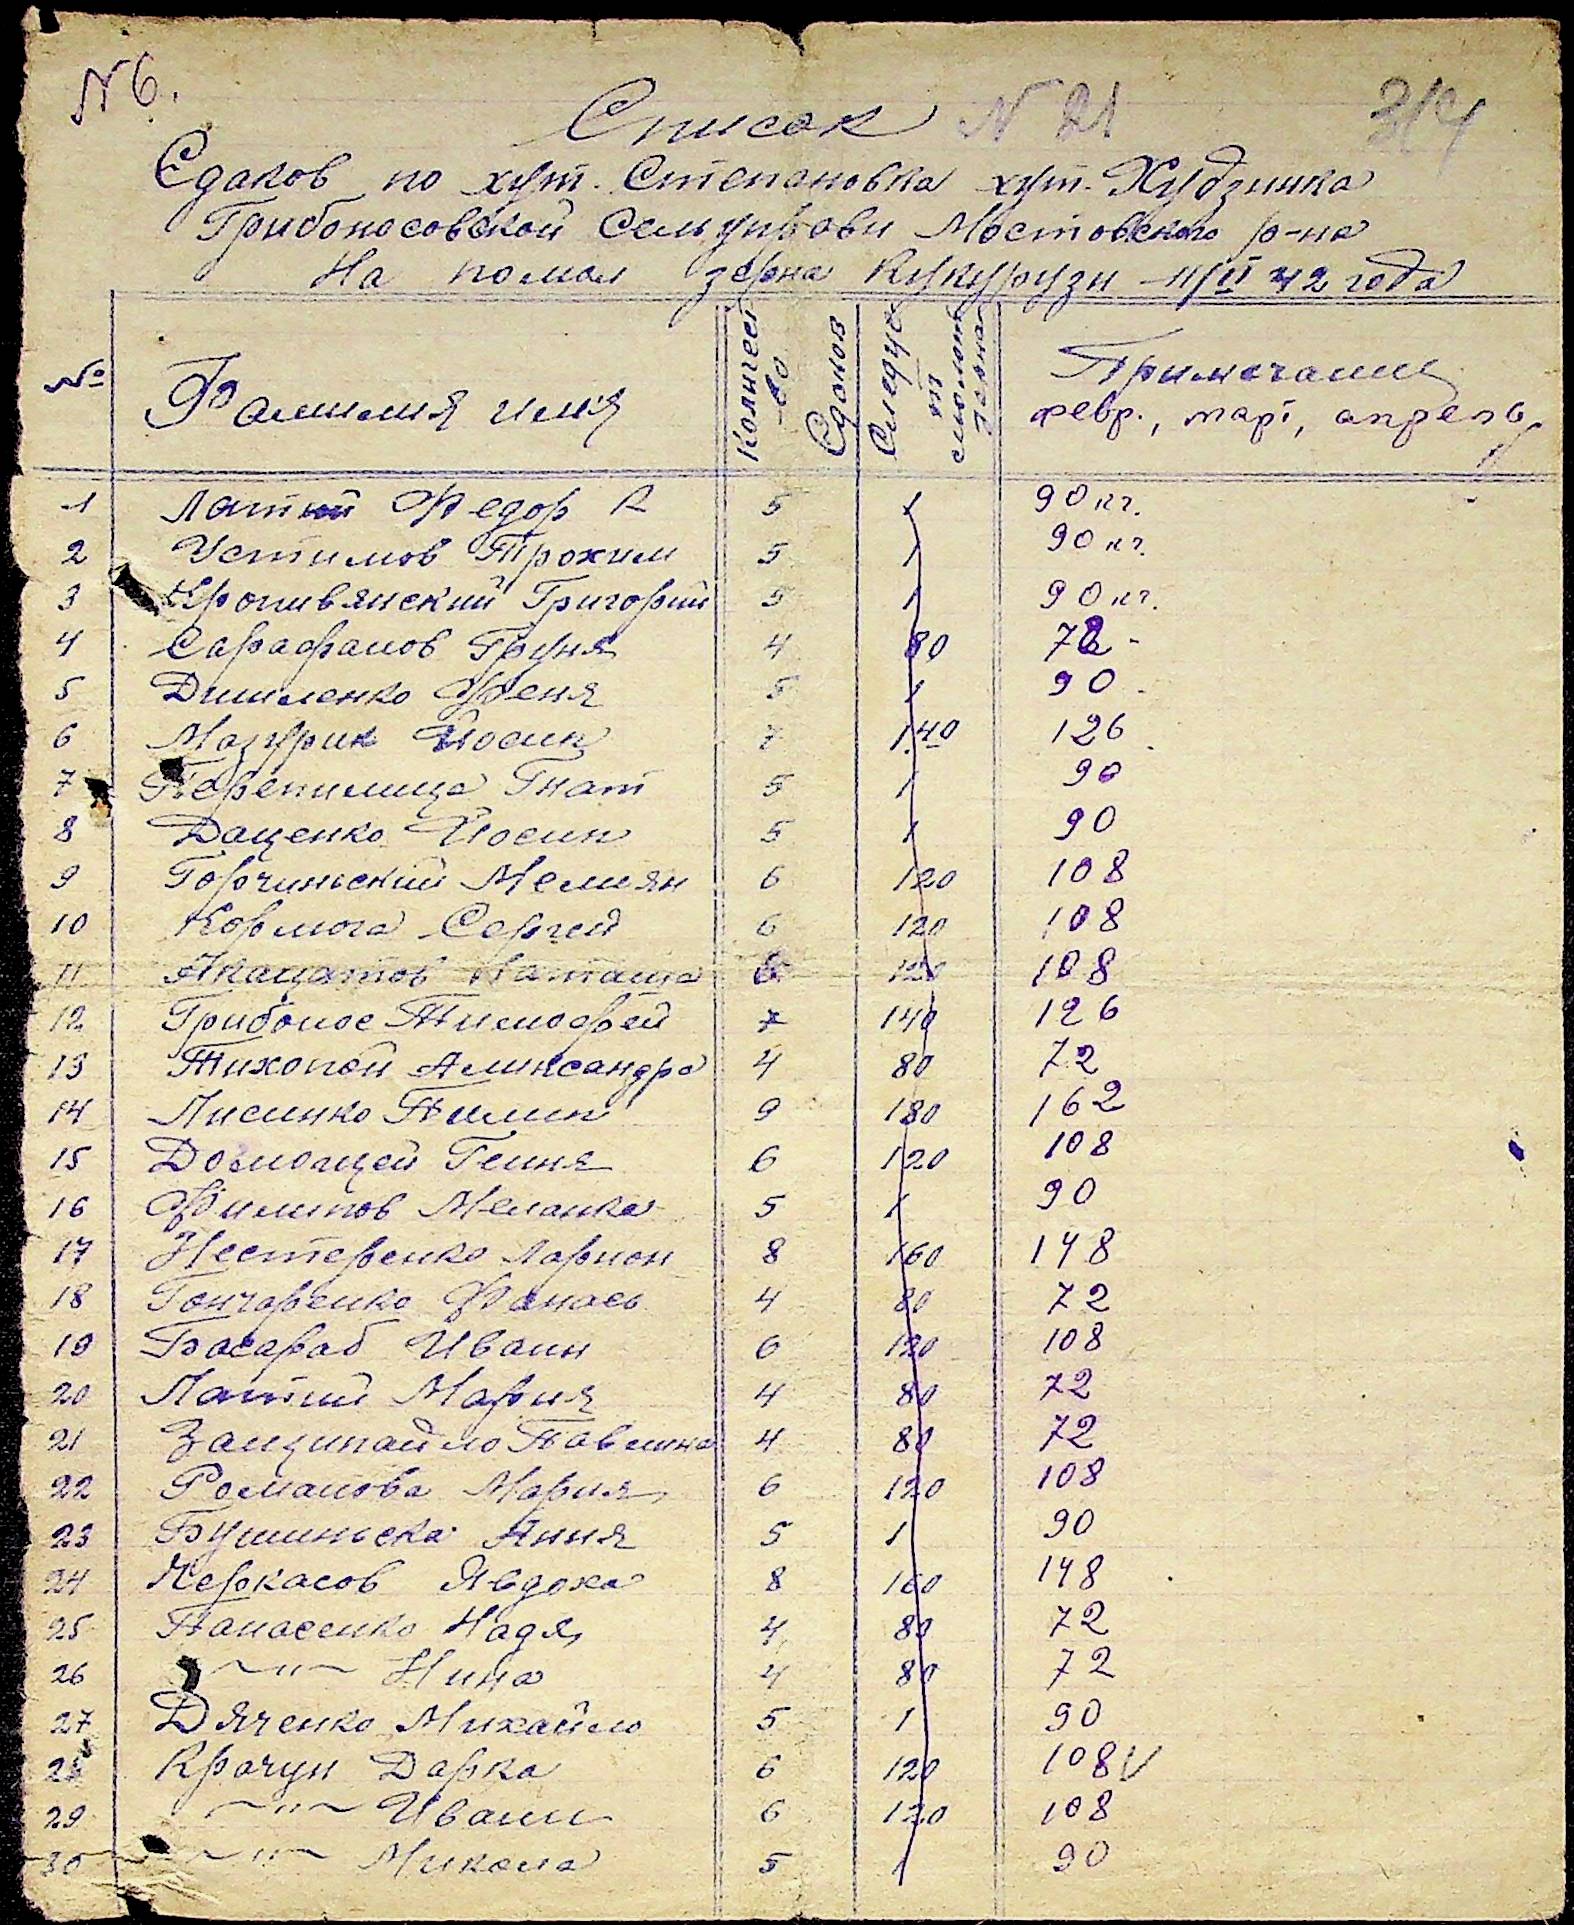 N 6.
Список N 21 314
Едаков по хут. Степановка хут. Худзинка
Грибоносовской Сельуправи Мостовского р-на
На помол зерна Кукурузи 11/II 42 года
№ Фамилия имя Количест-во Едаков Следует смолот зерна Примечание
февр., март, апрель
1 Латий Федор К 5 1 90 кг.
2 Устимов Трохим 5 1 90 кг.
3 Кропивянский Григорий 5 1 90 кг.
4 Сарафанов Груня 4 80 72 -
5 Дишленко Феня 5 1 90 -
6 Мазурик Йосип 7 1.40 126
7 Перепилица Гнат 5 1 90
8 Даценко Йосип 5 1 90
9 Горчинський Мелиян 6 120 108
10 Кормога Сергей 6 120 108
11 Акацатов Наташа 6 120 108
12 Грибонос Тимофей 7 140 126
13 Тихопой Алинсандра 4 80 72
14 Лисинко Пилип 9 180 162
15 Гення 6 120 108
16 Филипов Меланка 5 1 90
17 Нестеренко Ларион 8 160 148
18 Гончаренко Фанась 4 80 72
19 Басараб Иванн 6 120 108
20 Латий Мария 4 80 72
21 Защипайло Павлина 4 80 72
22 Романова Мария 6 120 108
23 Бушинська Анния 5 1 90
24 Черкасов Явдоха 8 160 148
25 Панасенко Надя 4 80 72
26 ~"~ Нина 4 80 72
27 Дяченко Михайло 5 1 90
28 Крачун Дарка 6 120 108 V
29 ~"~ Иванн 6 120 108
30 ~"~ Микола 5 1 90